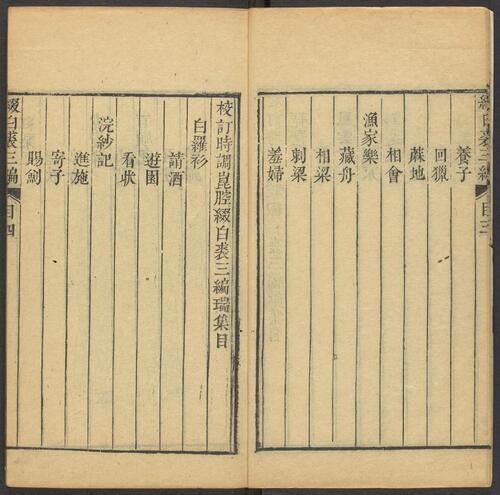 綴白裘三編 目三
養子
回獵
蔴地
相會
漁家樂
藏舟
相梁
刺梁
羞婦
校訂時調崑腔綴白裘三編瑞集目
白羅衫
請酒
遊園
看狀
浣紗記
進施
寄子
賜劍
綴白裘三編 目四